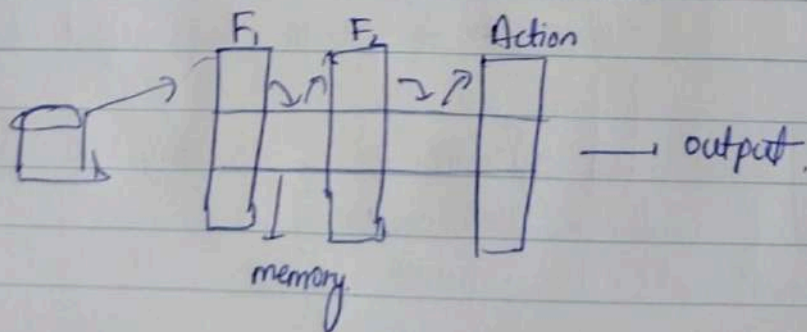 F₁ F₂ Action
output.
memory.